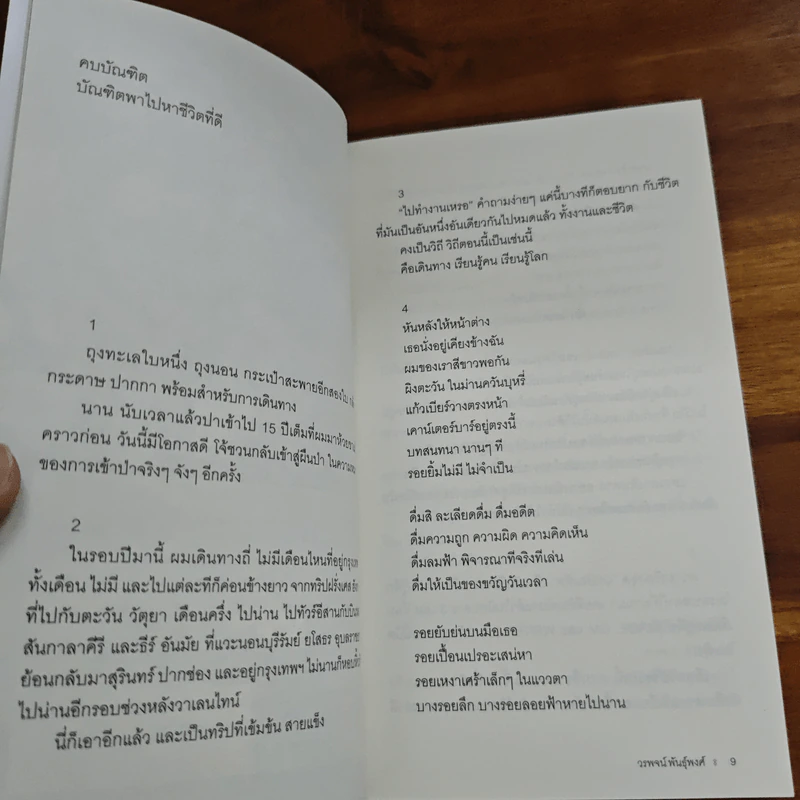 คบบัณฑิต
บัณฑิตพาไปหาชีวิตที่ดี
1
ถุงทะเลใบหนึ่ง ถุงนอน กระเป๋าสะพายอีกสองใบ
กระดาษ ปากกา พร้อมสำหรับการเดินทาง
นาน นับเวลาแล้วปาเข้าไป 15 ปีเต็มที่ผมมาห้วย
คราวก่อน วันนี้มีโอกาสดี โจ้ชวนกลับเข้าสู่ผืนป่า ในความ
ของการเข้าป่าจริงๆ จังๆ อีกครั้ง
2
ในรอบปีมานี้ ผมเดินทางถี่ ไม่มีเดือนไหนที่อยู่กรุงเทพ
ทั้งเดือน ไม่มี และไปแต่ละทีก็ค่อนข้างยาว จากทริปฝรั่งเศส
ที่ไปกับตะวัน วัตุยา เดือนครึ่ง ไปน่าน ไปทัวร์อีสานกับ
สันกาลาคีรี และธีร์ อันมัย ที่แวะนอนบุรีรัมย์ ยโสธร อุบลราช
ย้อนกลับมาสุรินทร์ ปากช่อง และอยู่กรุงเทพฯ ไม่นานก็หอบ
ไปน่านอีกรอบช่วงหลังวาเลนไทน์
นี่ก็เอาอีกแล้ว และเป็นทริปที่เข้มข้น สายแข็ง
3
“ไปทำงานเหรอ” คำถามง่ายๆ แค่นี้บางทีก็ตอบยาก กับชีวิต
ที่มันเป็นอันหนึ่งอันเดียวกันไปหมดแล้ว ทั้งงานและชีวิต
คงเป็นวิถี วิถีตอนนี้เป็นเช่นนี้
คือเดินทาง เรียนรู้คน เรียนรู้โลก
4
หันหลังให้หน้าต่าง
เธอนั่งอยู่เคียงข้างฉัน
ผมของเราสีขาวพอกัน
ผิงตะวัน ในม่านควันบุหรี่
แก้วเบียร์วางตรงหน้า
เคาน์เตอร์บาร์อยู่ตรงนี้
บทสนทนา นานๆ ที
รอยยิ้มไม่มี ไม่จำเป็น
ดื่มสิ ละเลียดดื่ม ดื่มอดีต
ดื่มความถูก ความผิด ความคิดเห็น
ดื่มลมฟ้า พิจารณาทีจริงทีเล่น
ดื่มให้เป็นของขวัญวันเวลา
รอยยับย่นบนมือเธอ
รอยเปื้อนเปรอะเสน่หา
รอยเหงาเศร้าเล็กๆ ในแววตา
บางรอยลึก บางรอยลอยฟ้าหายไปนาน
วรพจน์ พันธุ์พงศ์ 9